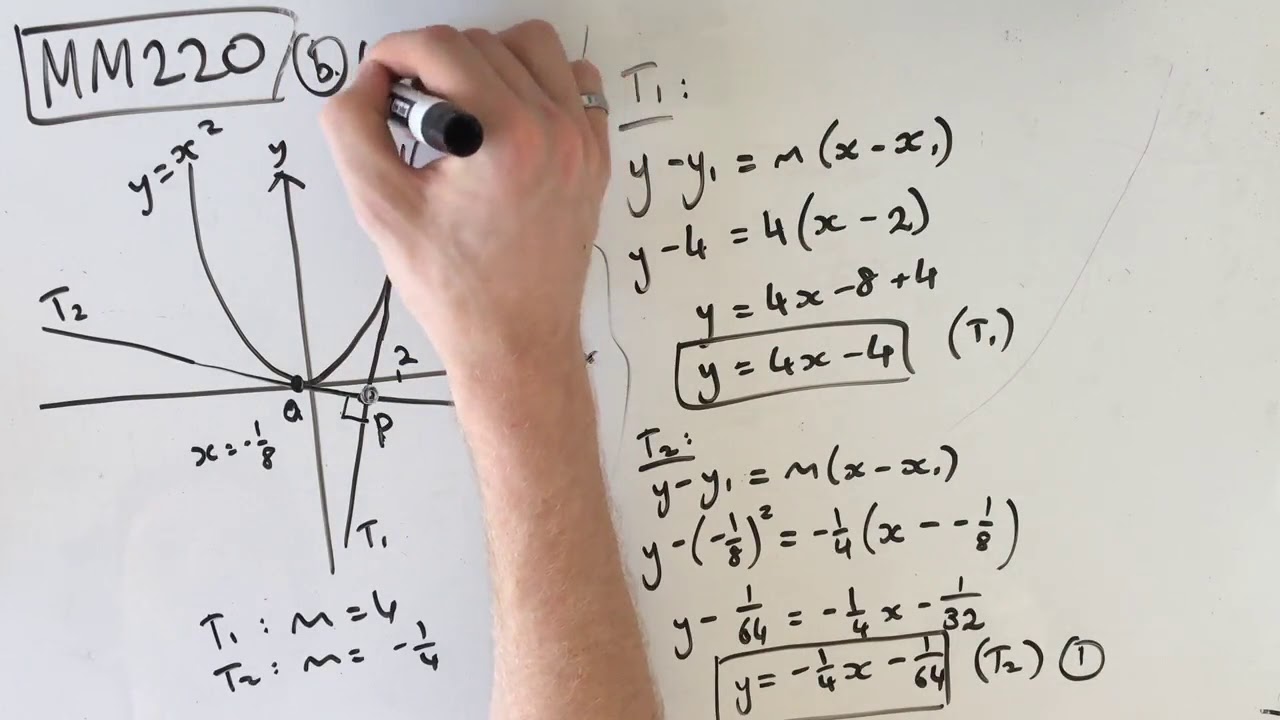 MM220 b.
y=x²
y
T₂
2
a
P
x=-1/8
T₁
T₁: m=4
T₂: m= -1/4
T₁:
y-y₁ = m(x-x₁)
y-4 = 4(x-2)
y = 4x-8+4
y = 4x-4 (T₁)
T₂:
y-y₁ = m(x-x₁)
y-(-1/8)² = -1/4(x--1/8)
y-1/64 = -1/4x-1/32
y= -1/4x-1/64 (T₂) ①